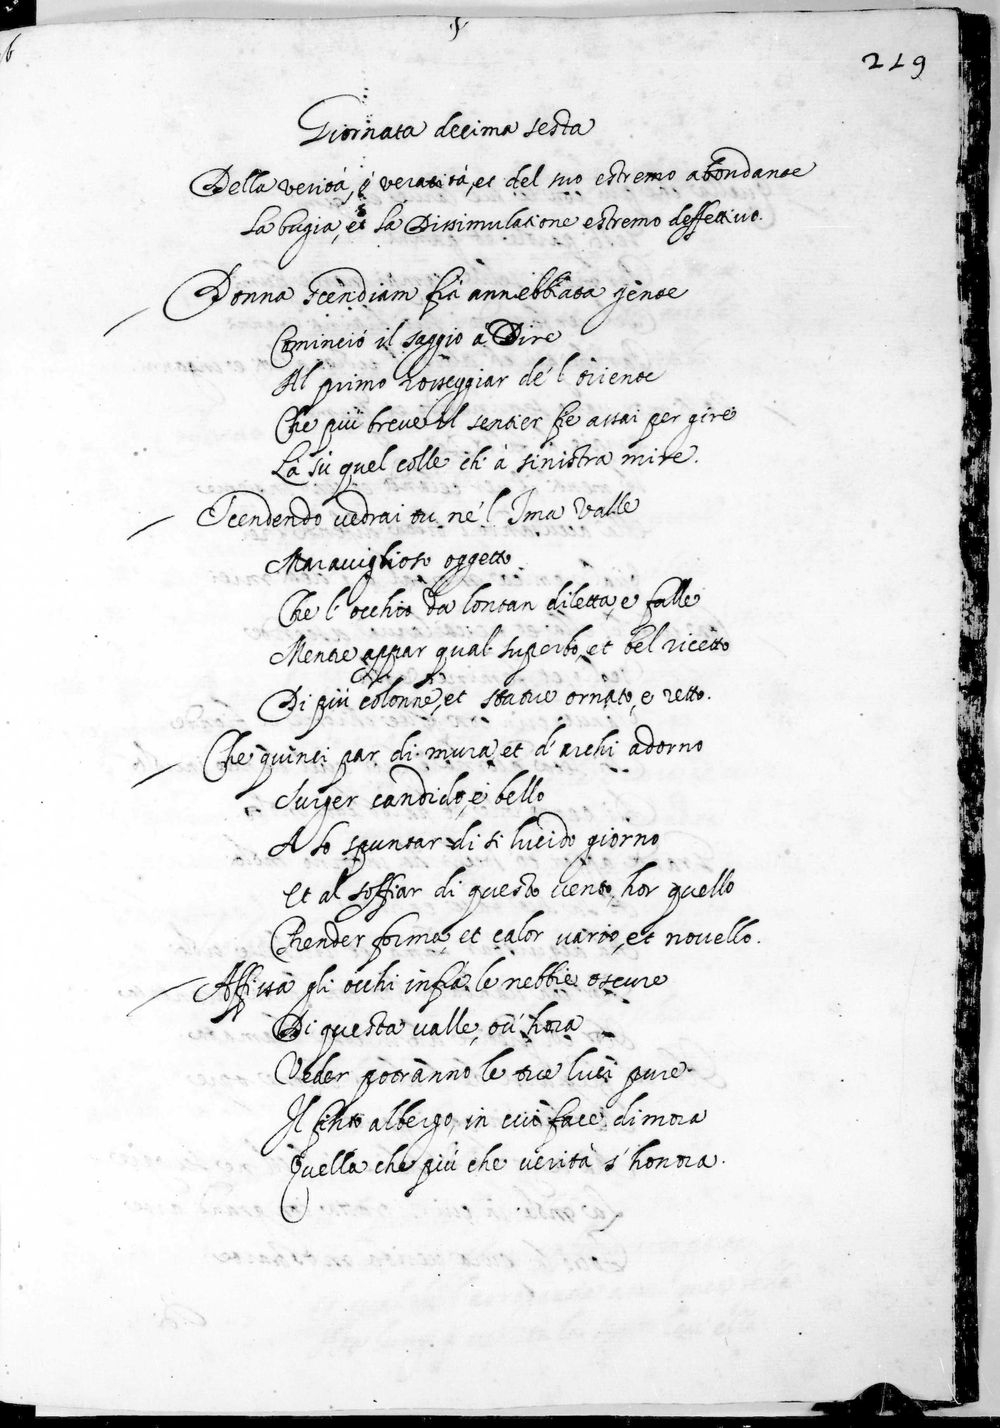 219
Giornata decima sesta
Della veritá, é veracitá, et del suo estremo abondante
La bugia, et la Dissimulatione estremo deffettivo.
Donna scendiam frà annebbiata gente
Cominció il saggio á Dire
Al primo rosseggiar de'l oriente
Che piú breve il sentier fie assai per gire
Lá sú quel colle ch'á sinistra mire.
Scendendo vedrai tu ne'l Ima valle
Maraviglioso oggetto
Che l'occhio da lontan diletta, e falle
Mentre appar qual superbo, et bel ricetto
Di piú colonne, et statue ornato, e retto.
Che quinci par di mura, et d'archi adorno
Surger candido, e bello
A lo spuntar di si lucido giorno
Et al soffiar di questo vento, hor quello
Prender forma, et calor vario, et novello.
Affissa gli occhi infrà le nebbie oscure
Di questa valle, ov'hora
Veder potranno le tue luci pure
Il finto albergo, in cui face dimora
Quella che piú che veritá s'honora.